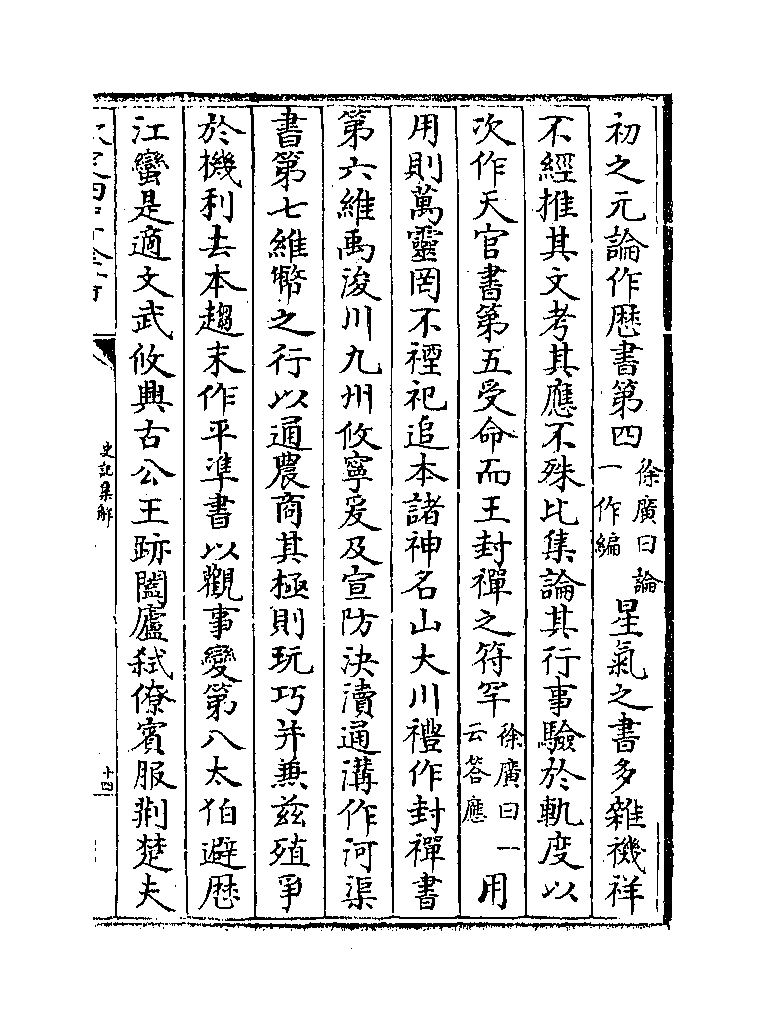 初之元論作厯書第四徐廣曰論一作編星氣之書多雜禨祥
不經推其文考其應不殊比集論其行事驗於軌度以
次作天官書第五受命而王封禪之符罕徐廣曰一云答應用
用則萬靈罔不禋祀追本諸神名山大川禮作封禪書
第六維禹浚川九州攸寧爰及宣防決瀆通溝作河渠
書第七維幣之行以通農商其極則玩巧并兼茲殖爭
於機利去本趨末作平準書以觀事變第八太伯避厯
江蠻是適文武攸興古公王跡闔廬弑僚賓服荆楚夫
史記集解
十四